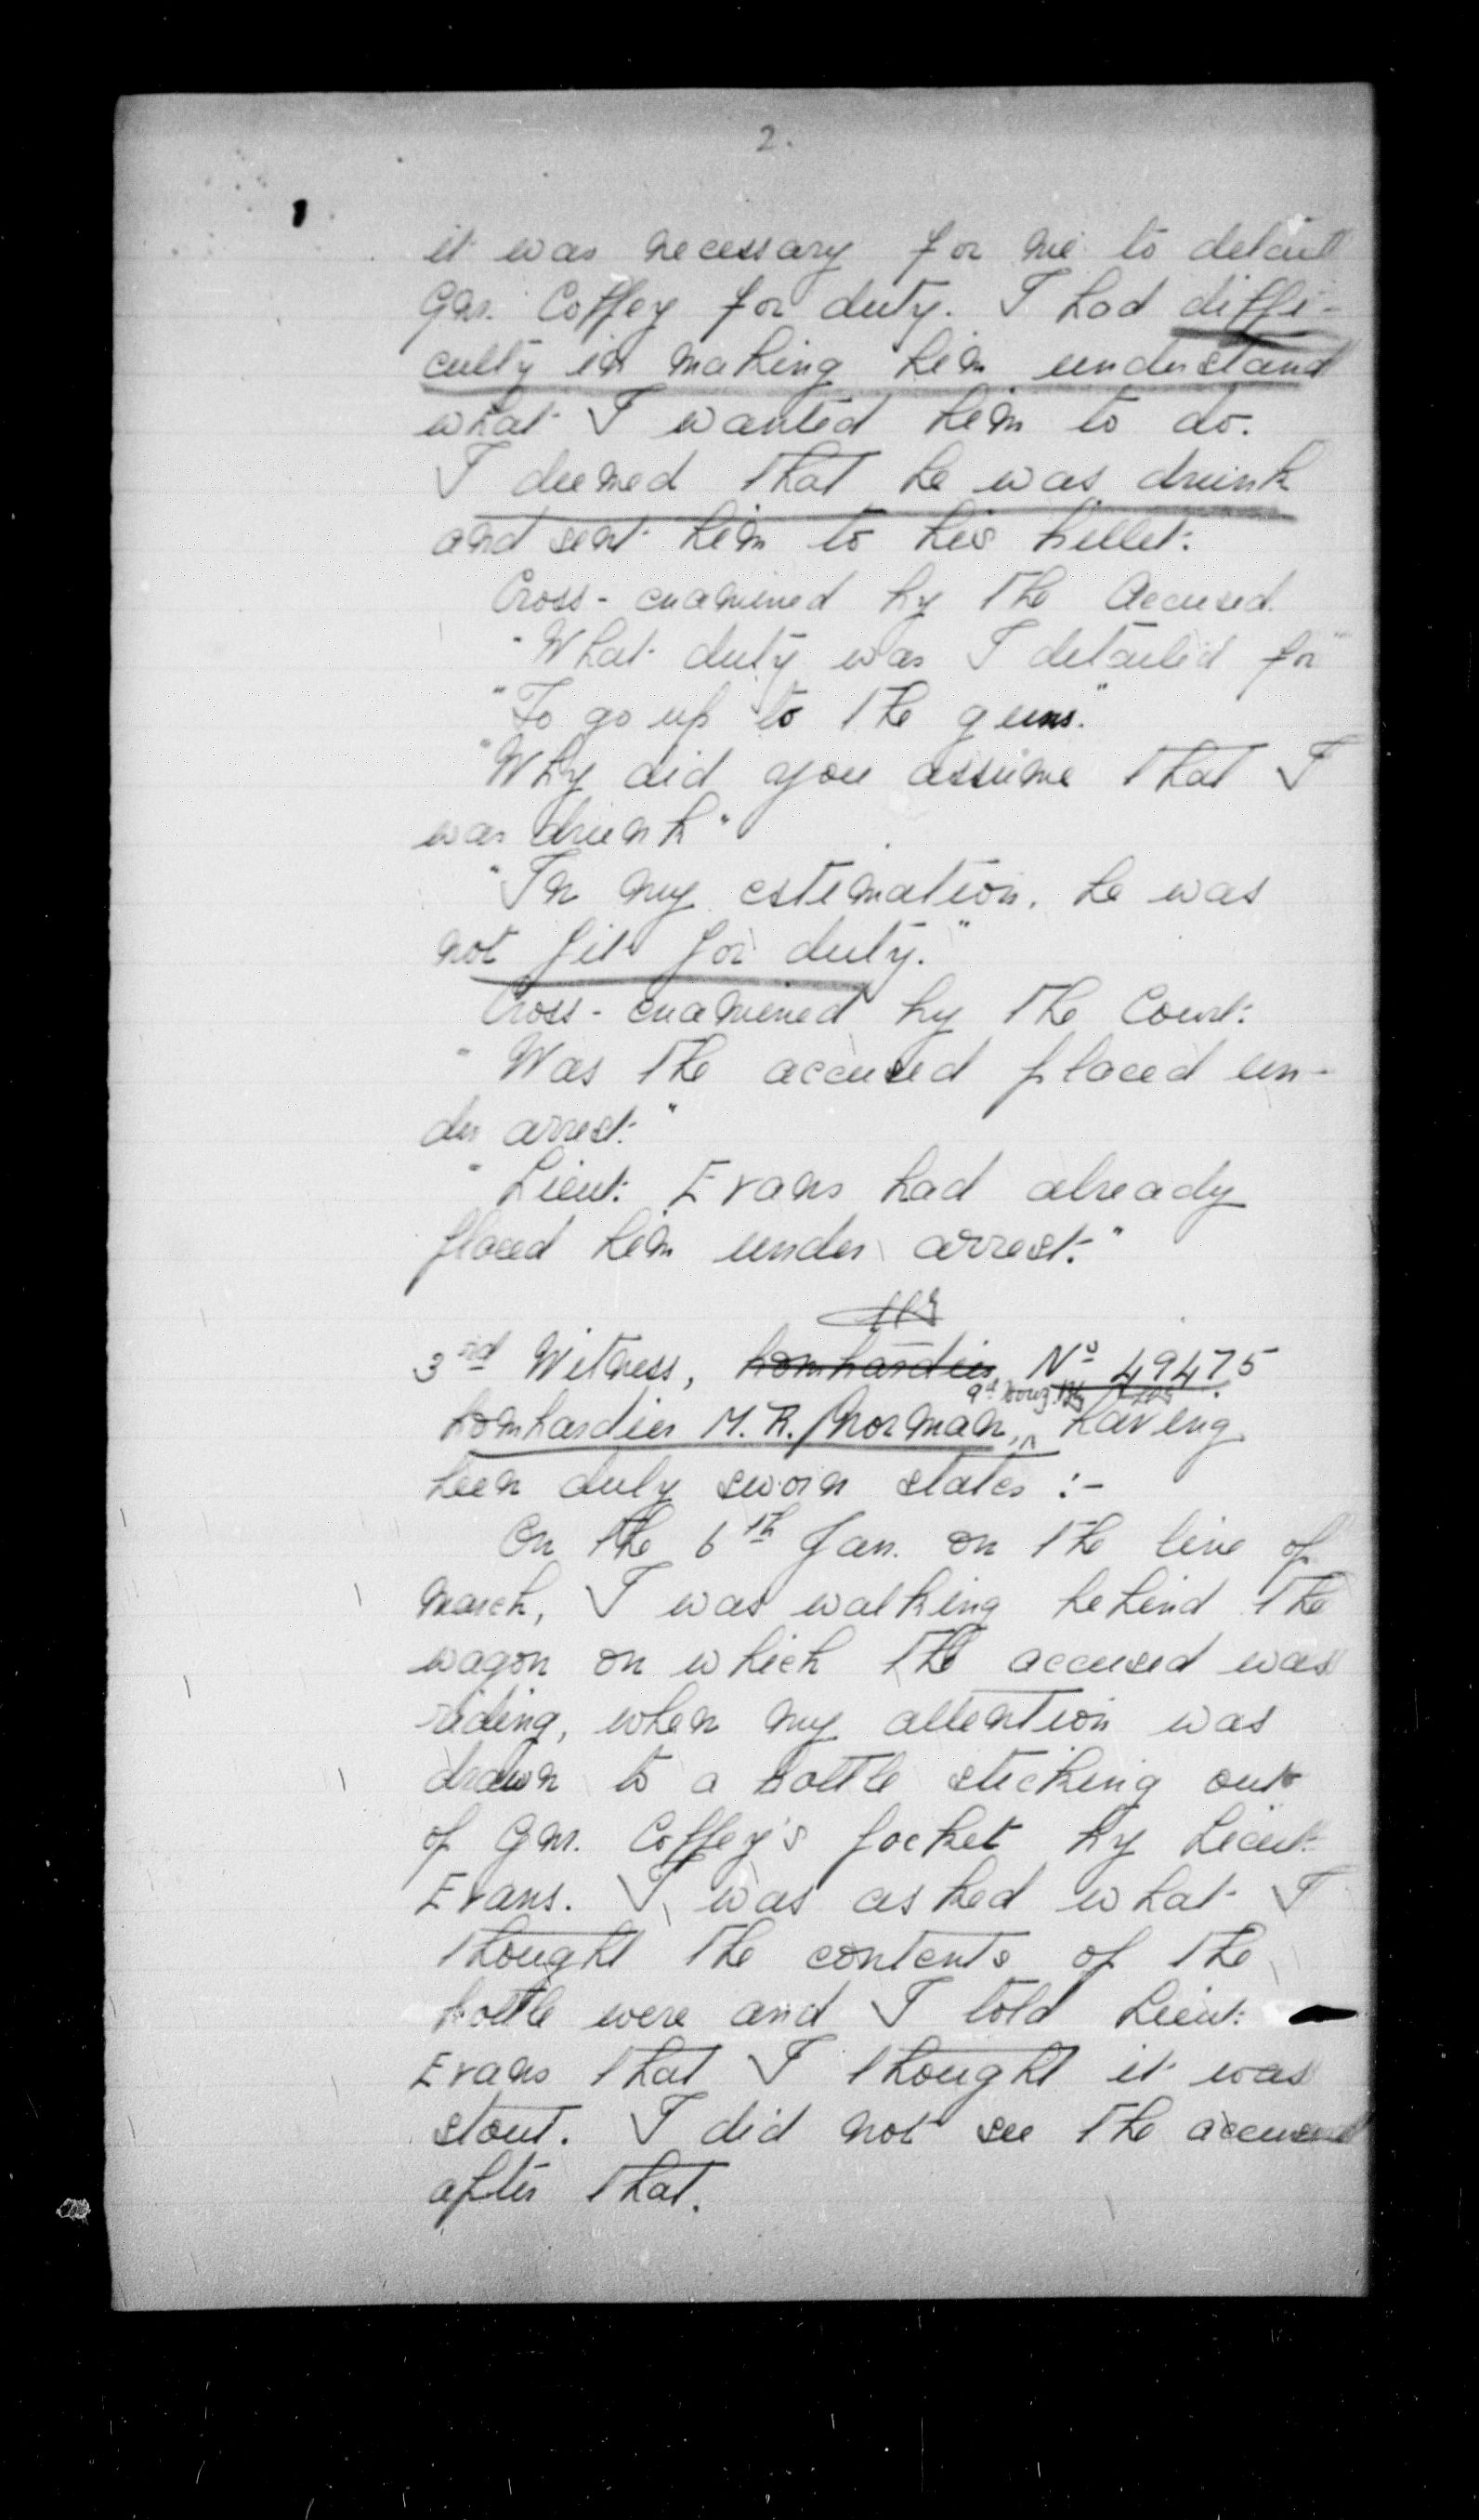 2.
it was necessary for me to detail
Gnr. Coffey for duty. I had diffi-
culty in making him understand
what I wanted him to do.
I deemed that he was drunk
and sent him to his billet.
Cross-examined by the Accused.
"What duty was I detailed for"
"To go up to the guns."
"Why did you assume that I
was drunk"
"In my estimation, he was
not fit for duty."
Cross-examined by the Court:
"Was the accused placed un-
der arrest."
"Lieut. Evans had already
placed him under arrest."
3rd Witness, bombardier No 49475
9th Howz. Bty
bombardier M. R. Norman, having
been duly sworn states :-
On the 6th Jan. on the line of
march, I was walking behind the
wagon on which the accused was
riding, when my attention was
drawn to a bottle sticking out
of Gnr. Coffey's pocket by Lieut.
Evans. I was asked what I
thought the contents of the
bottle were and I told Lieut.
Evans that I thought it was
stout. I did not see the accused
after that.